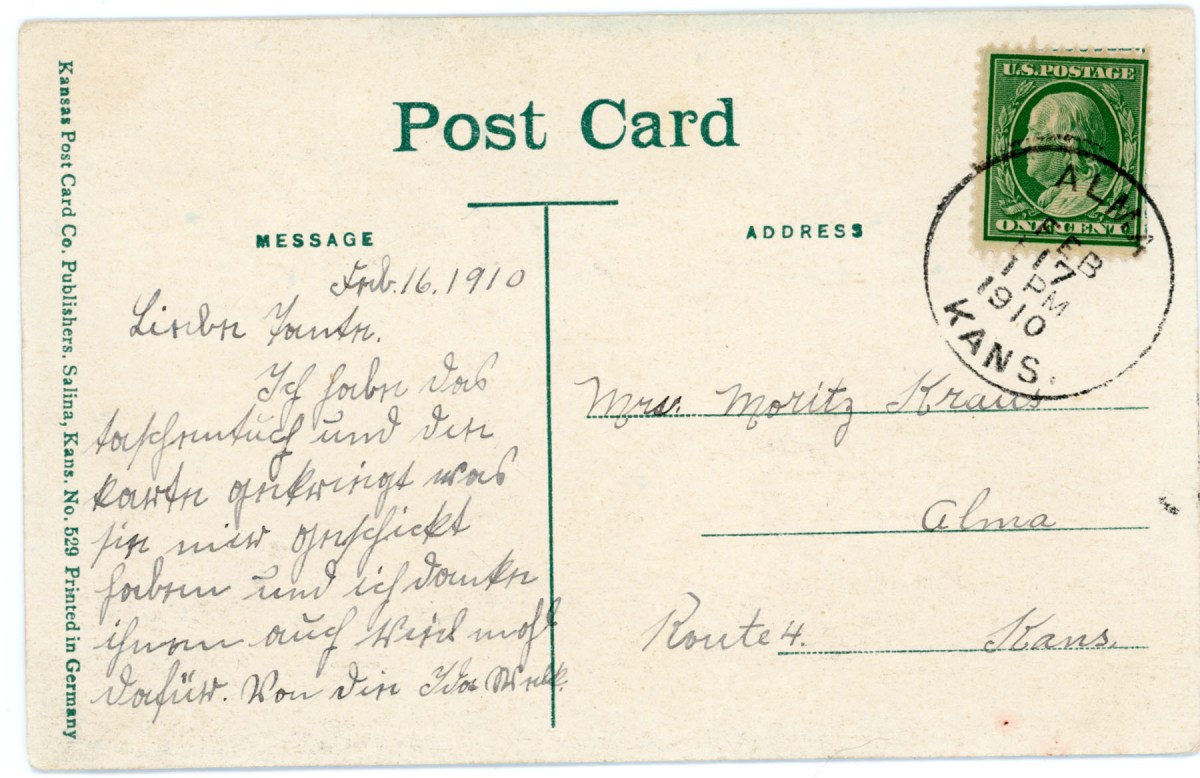 Post Card
U.S. POSTAGE
ONE CENT
ALMA
FEB
17
1 PM
1910
KANS.
MESSAGE
ADDRESS
Kansas Post Card Co. Publishers, Salina, Kans. No. 529 Printed in Germany
Feb. 16. 1910
Liebe Tante.
Ich habe das
taschentuch und die
karte gekriegt was
sie mir geschickt
haben und ich danke
ihnen auch viel mohl
dafür. Von die Ida
Mrs. Moritz Kraus
Alma
Route 4. Kans.